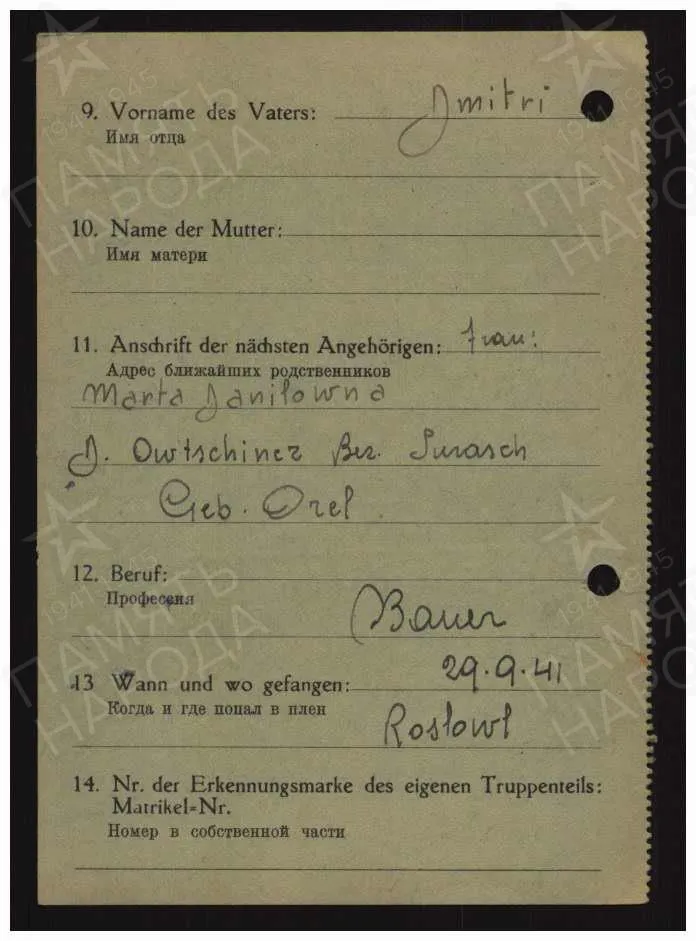 9. Vorname des Vaters: Dmitri
Имя отца
10. Name der Mutter:
Имя матери
11. Anschrift der nächsten Angehörigen: Frau:
Адрес ближайших родственников
Marta Danilowna
D. Owtschinez Bez. Surasch
Geb. Orel
12. Beruf:
Профессия
Bauer
13 Wann und wo gefangen: 29.9.41
Когда и где попал в плен
Roslowl
14. Nr. der Erkennungsmarke des eigenen Truppenteils:
Matrikel=Nr.
Номер в собственной части
ПАМЯТЬ НАРОДА
1941 1945